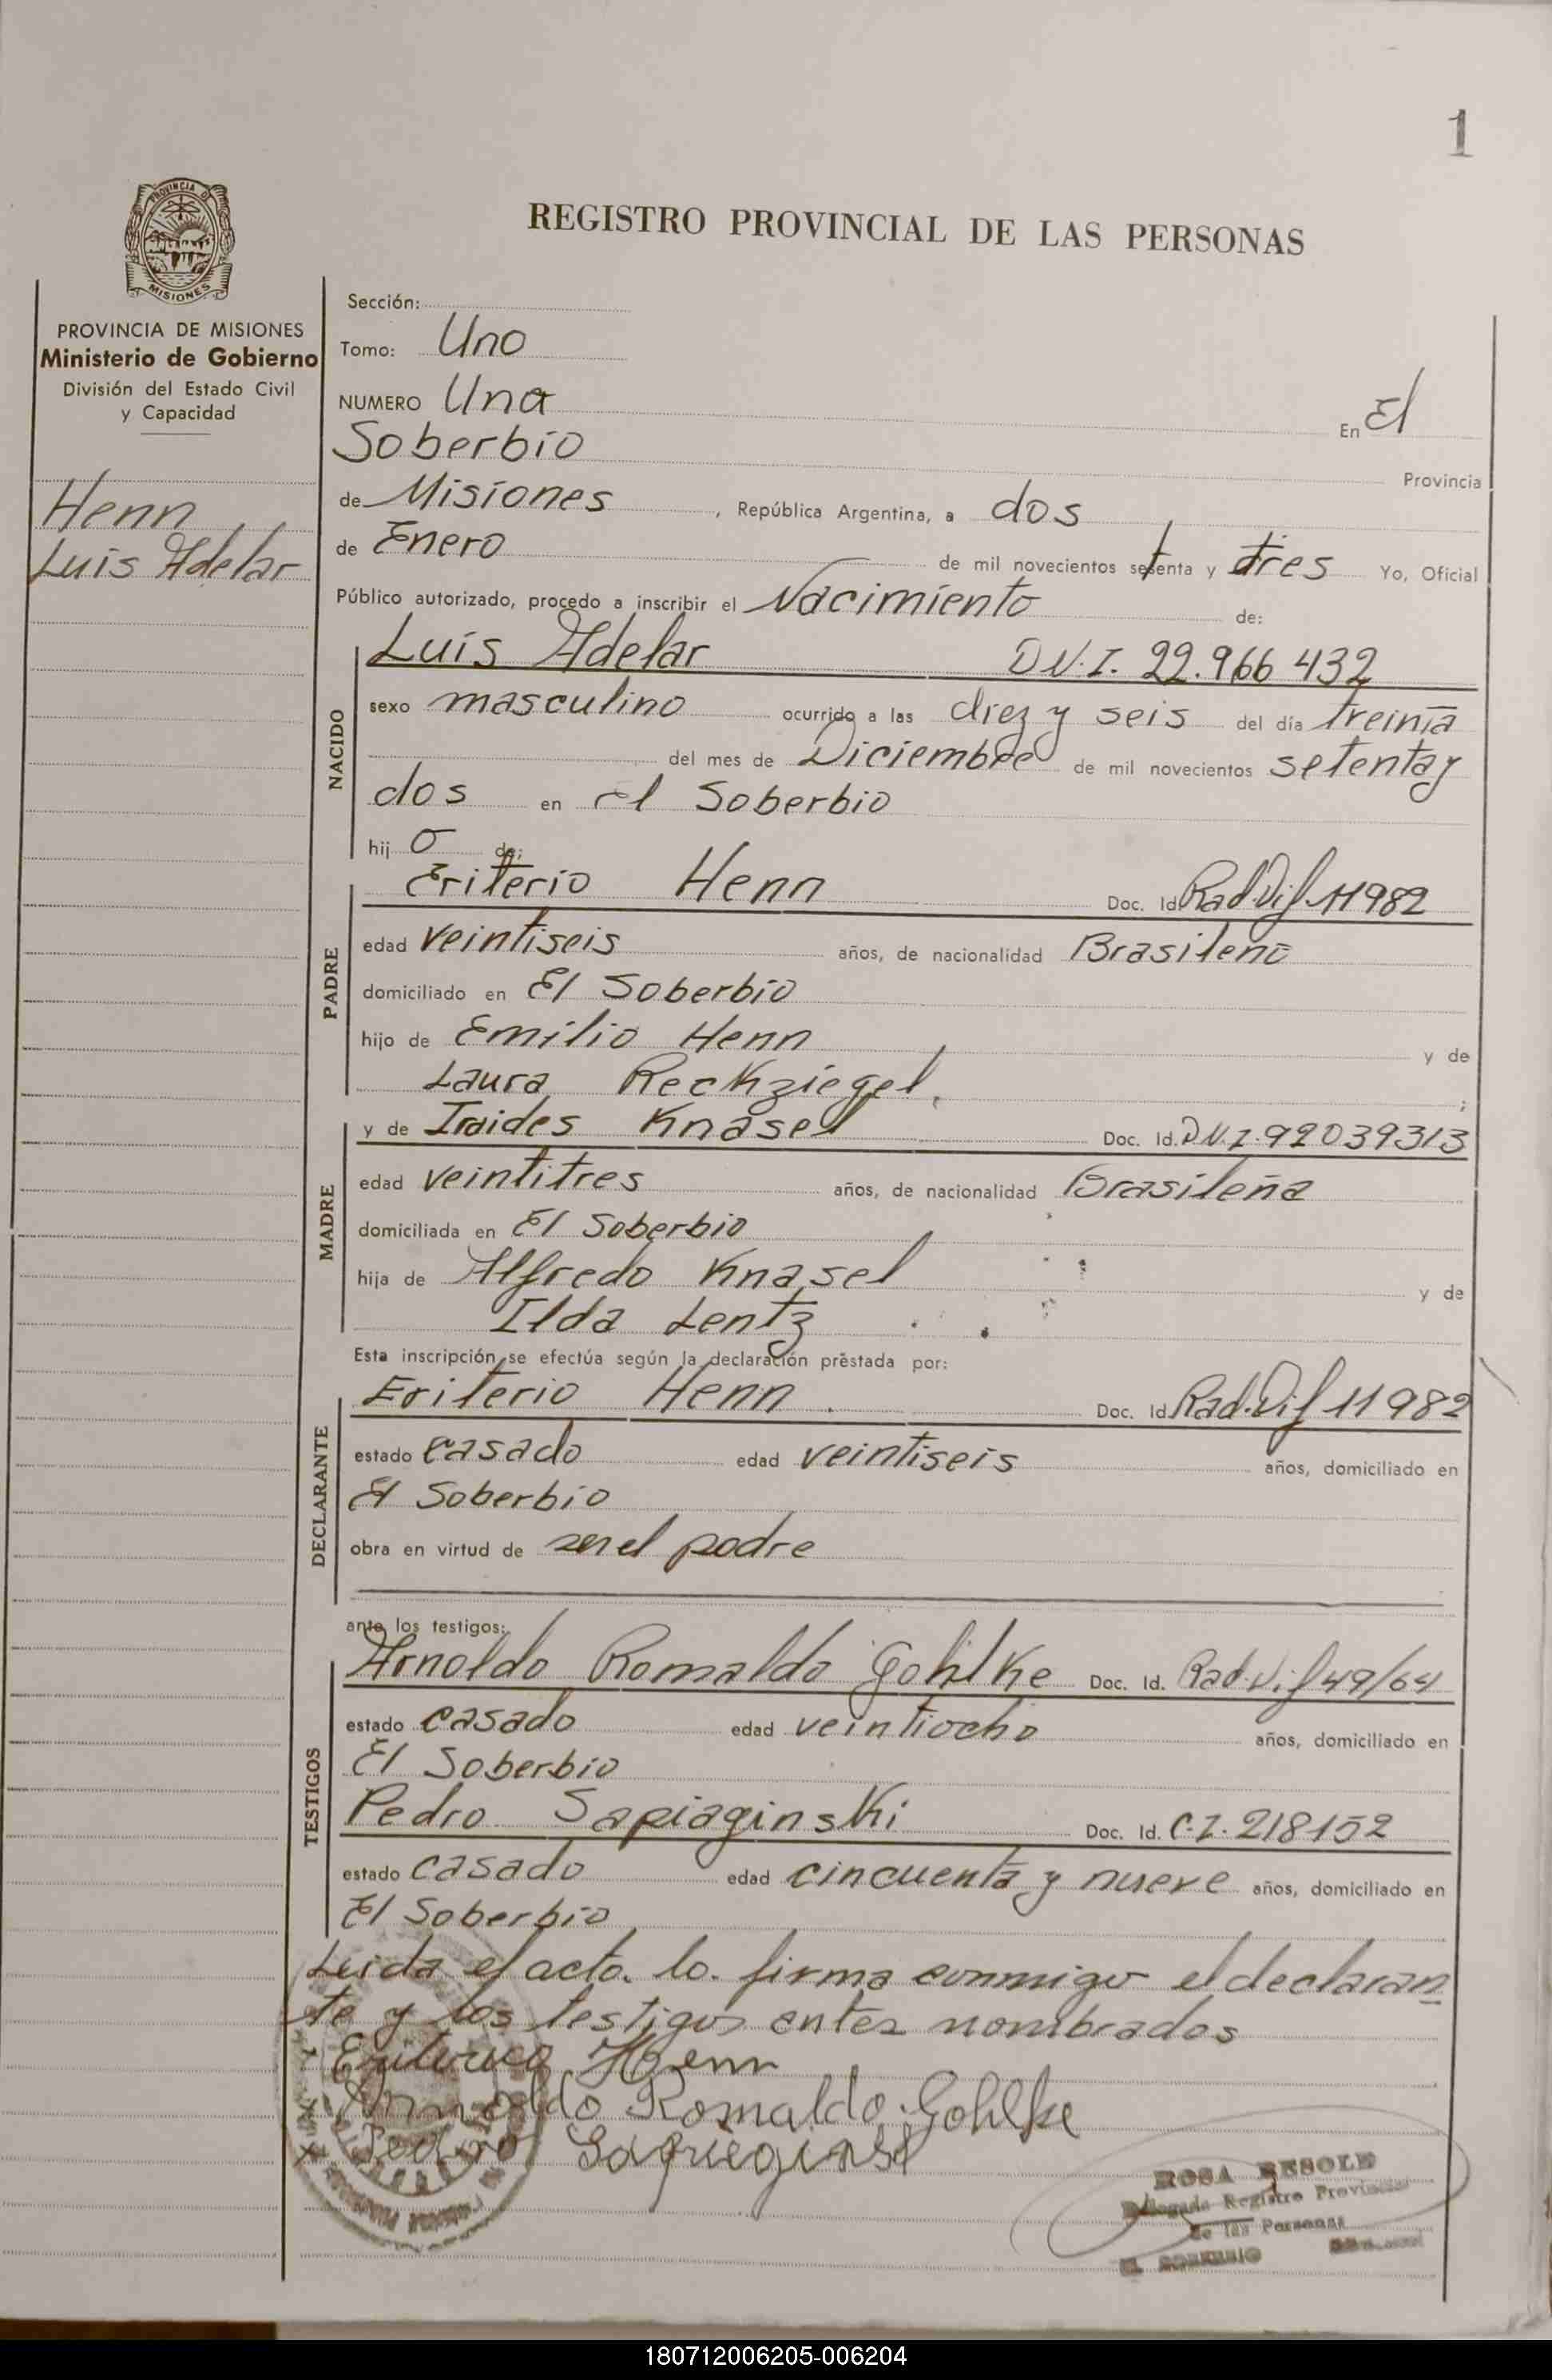 1
PROVINCIA DE
MISIONES
REGISTRO PROVINCIAL DE LAS PERSONAS
PROVINCIA DE MISIONES
Ministerio de Gobierno
División del Estado Civil
y Capacidad
Henn
Luis Adelar
Sección:
Tomo: Uno
NUMERO Una En El
Soberbio Provincia
de Misiones, República Argentina, a dos
de Enero de mil novecientos setenta y tres Yo, Oficial
Público autorizado, procedo a inscribir el Nacimiento de:
NACIDO
Luis Adelar D.N.I. 22.966 432
sexo masculino ocurrido a las diez y seis del día treinta
del mes de Diciembre de mil novecientos setenta y
dos en el Soberbio
hijo de:
PADRE
Eriterio Henn Doc. Id. Rad.Dif 11982
edad veintiseis años, de nacionalidad Brasileño
domiciliado en El Soberbio
hijo de Emilio Henn y de
Laura Reckziegel. ;
MADRE
y de Iraides Knasel Doc. Id. D.N.I. 92039313
edad veintitres años, de nacionalidad Brasileña
domiciliada en El Soberbio
hija de Alfredo Knasel y de
Ilda Lentz
Esta inscripción se efectúa según la declaración prestada por:
DECLARANTE
Eriterio Henn. Doc. Id. Rad.Dif 11982
estado casado edad veintiseis años, domiciliado en
El Soberbio
obra en virtud de ser el padre
ante los testigos:
TESTIGOS
Arnoldo Romaldo Gohlke Doc. Id. Rad.Dif 49/64
estado casado edad veintiocho años, domiciliado en
El Soberbio
Pedro Sapiaginski Doc. Id. C.I. 218152
estado casado edad cincuenta y nueve años, domiciliado en
El Soberbio
Leida el acta. lo. firma conmigo el declaran
te y los testigos antes nombrados
Eriterio Henn
Arnoldo Romaldo Gohlke
x Pedro
ROSA RESOLE
Delegada Registro Provincial
de las Personas
EL SOBERBIO
180712006205-006204